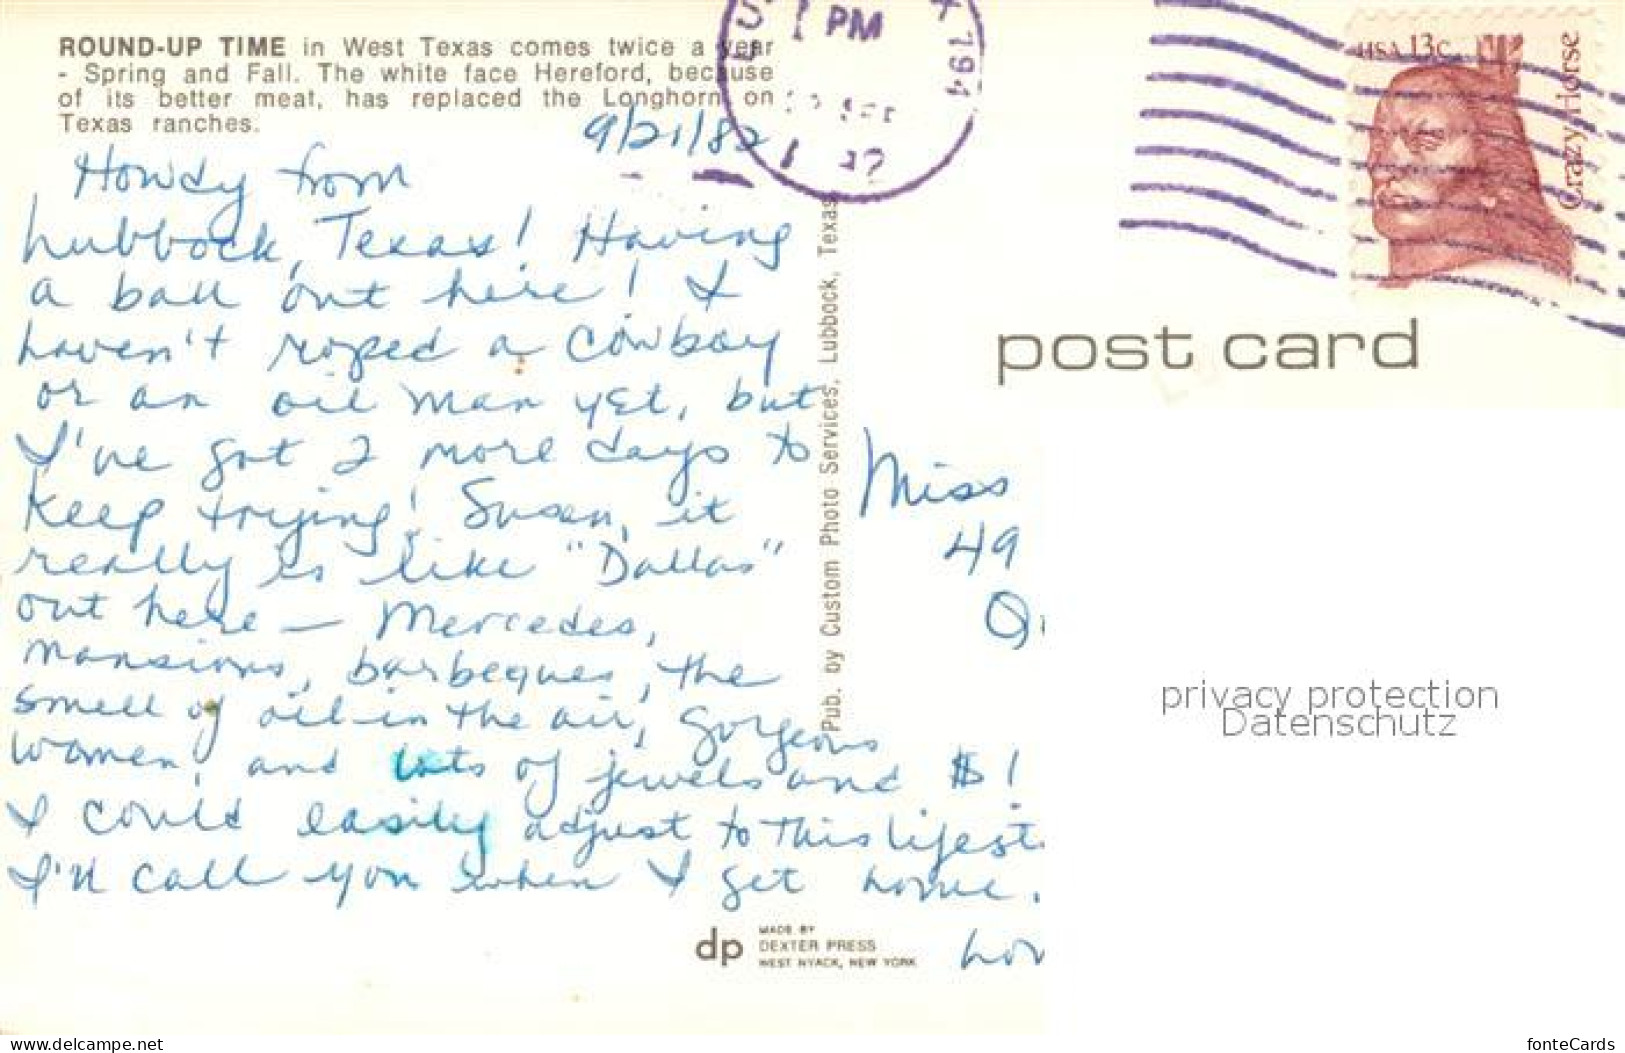 ROUND-UP TIME in West Texas comes twice a year
- Spring and Fall. The white face Hereford, because
of its better meat, has replaced the Longhorn on
Texas ranches.
9/21/82
Howdy from
Lubbock, Texas! Having
a ball out here! I
haven't roped a cowboy
or an oil man yet, but
I've got 2 more days to
keep trying! Susan, it
really is like "Dallas"
out here — Mercedes,
mansions, barbeques, the
smell of oil in the air, gorgeous
women, and lots of jewels and $!
I could easily adjust to this lifest
I'll call you when I get home.
Lov
Pub. by Custom Photo Services, Lubbock, Texas
dp
MADE BY
DEXTER PRESS
WEST NYACK, NEW YORK
PM
794
SEP
USA 13c
Crazy Horse
post card
Miss
49
privacy protection
Datenschutz
www.delcampe.net
fonteCards